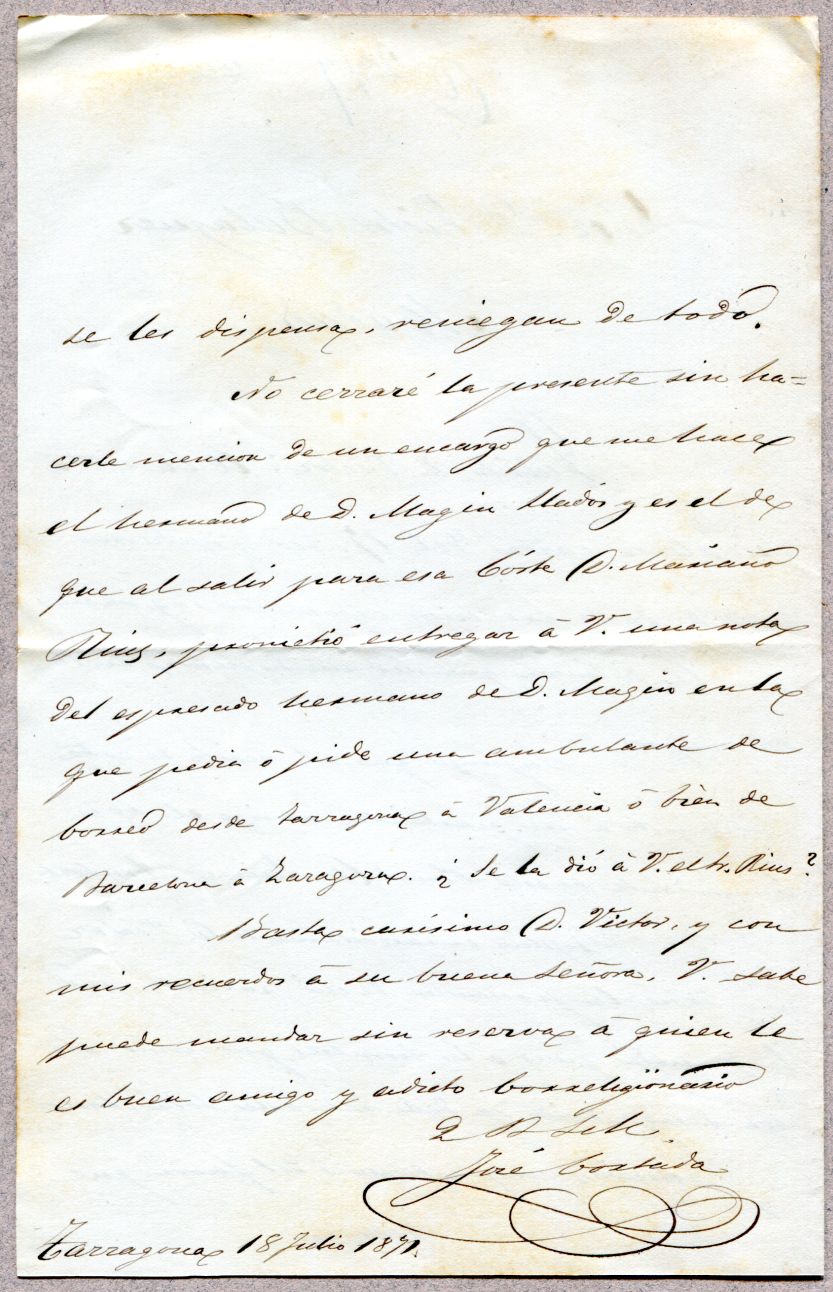 se les dispensa, reniegan de todo.
No cerraré la presente sin ha=
cerle mencion de un encargo que me hace
el hermano de D. Magin Lladós y es el de
que al salir para esa Córte D. Mariano
Rius, prometió entregar á V. una nota
del espresado hermano de D. Magin en la
que pedia ó pide una ambulante de
Correo desde Tarragona á Valencia ó bien de
Barcelona á Zaragoza. ¿Se la dió á V. el Sr. Rius?
Basta carísimo D. Victor, y con
mis recuerdos á su buena Señora, V. sabe
puede mandar sin reserva á quien le
es buen amigo y adicto Correligionario
Q B S M
José Cortada
Tarragona 18 Julio 1871.